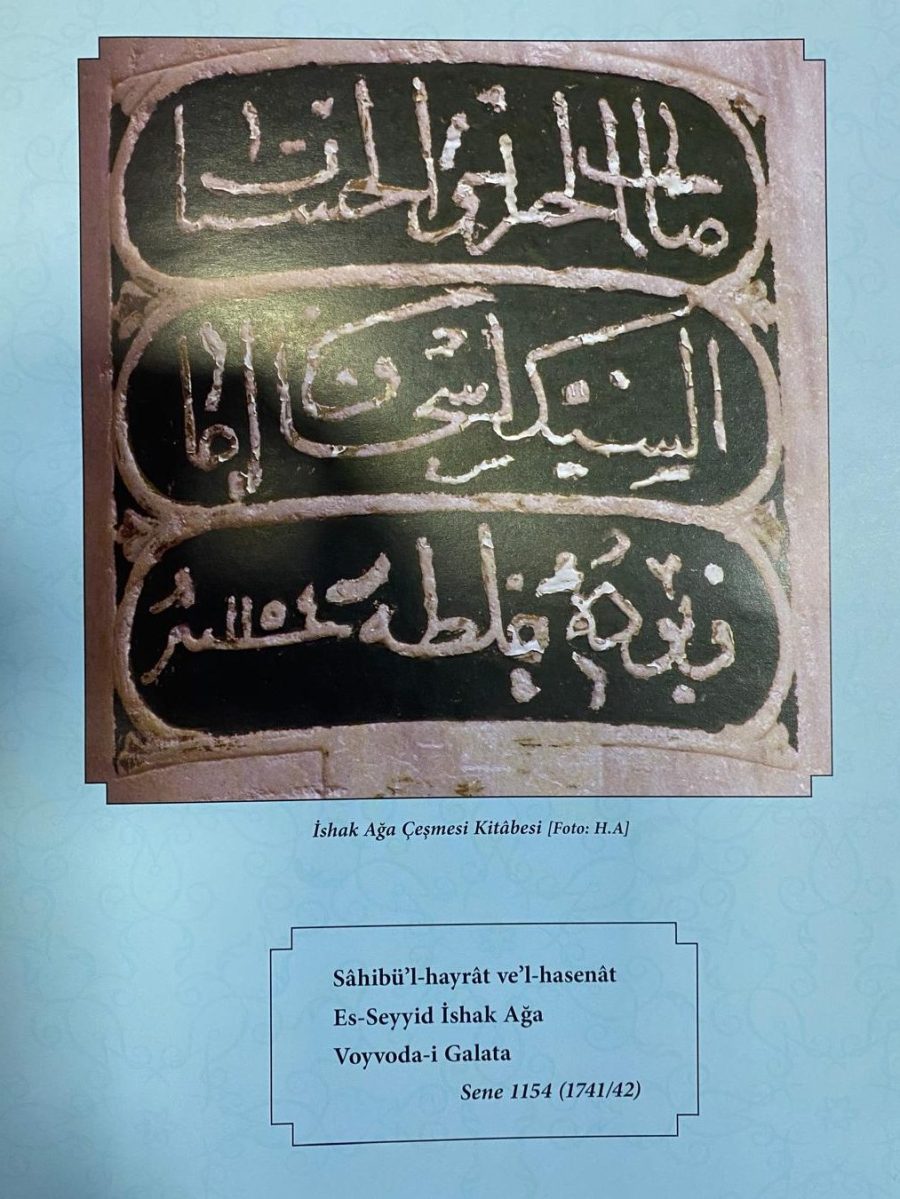 صاحب الخيرات والحسنات
السيد اسحق اغا
ويوده غلطه سنه ١١٥٤
İshak Ağa Çeşmesi Kitâbesi [Foto: H.A]
Sâhibü’l-hayrât ve’l-hasenât
Es-Seyyid İshak Ağa
Voyvoda-i Galata
Sene 1154 (1741/42)